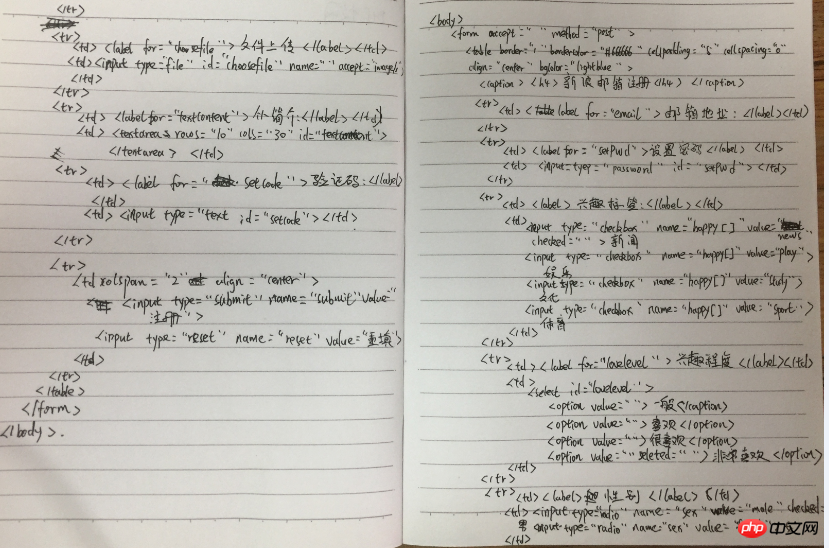 </tr>
<tr>
<td> <label for="choosefile"> 文件上传 </label></td>
<td><input type="file" id="choosefile" name="" accept="
</td>
</tr>
<tr>
<td> <label for="textcontent"> 简介:</label></td>
<td> <textarea rows="10" cols="30" id=
</textarea> </td>
<tr>
<td> <label for=" setcode"> 验证码:</label>
</td>
<td> <input type="text id="setcode"></td>
</tr>
<tr>
<td colspan="2" align="center">
<input type="submit" name="submit" value="
注册">
<input type="reset" name="reset" value="重填">
<td>
</tr>
</table>
</form>
</body>.
<body>
<form accept=" " method="post">
<table border="1" bordercolor="#666666" cellpadding="5" cellspacing="0"
align="center" bgcolor="lightblue">
<caption> <h4> 新浪邮箱注册<h4> </caption>
<tr>
<td> < label for="email"> 邮箱地址:</label></td>
</tr>
<tr>
<td> <label for="setPwd">设置密码</label> </td>
<td> <input type="password" id="setPwd"> </td>
</tr>
<tr>
<td> <label> 兴趣标签:</label> </td>
<td> <input type="checkbox" name="happy[]" value="
news
checked=""> 新闻
<input type="checkbox" name="happy[]" value="play">
娱乐
<input type="checkbox" name="happy[]" value="study">
文化
<input type="checkbox" name="happy[]" value="sport">
体育
</td>
</tr>
<tr>
<td> <label for="lovelevel"> 兴趣程度 </label></td>
<td>
<select id="lovelevel">
<option value=""> 一般</caption>
<option value=""> 喜欢</option>
<option value=""> 很喜欢</option>
<option value="" seleted=""> 非常喜欢 </option>
</td>
</tr>
<tr>
<td> <label> 性别 </label> </td>
<td> <input type="radio" name="sex" value="male" checked=
男 <input type="radio" name="sex" value="
</td>
php 中文网